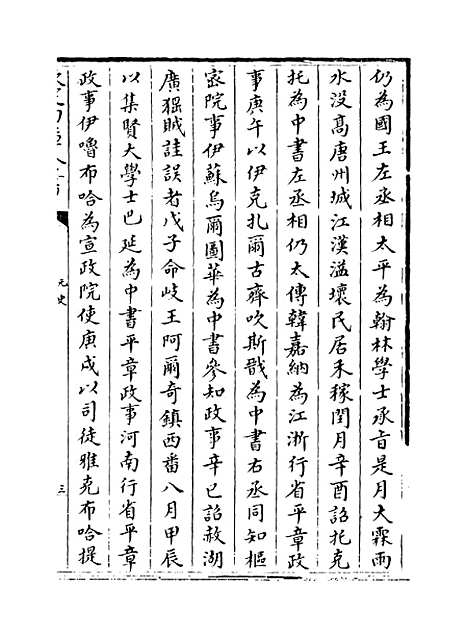 仍為國王左丞相太平為翰林學士承旨是月大霖雨
水沒高唐州城江漢溢壞民居禾稼閏月辛酉詔托克
托為中書左丞相仍太傅韓嘉納為江浙行省平章政
事庚午以伊克扎爾古齊吹斯戩為中書右丞同知樞
宻院事伊蘇烏爾圖華為中書參知政事辛巳詔赦湖
廣猺賊詿誤者戊子命岐王阿爾奇鎮西番八月甲辰
以集賢大學士巴延為中書平章政事河南行省平章
政事伊嚕布哈為宣政院使庚戌以司徒雅克布哈提
元史
三